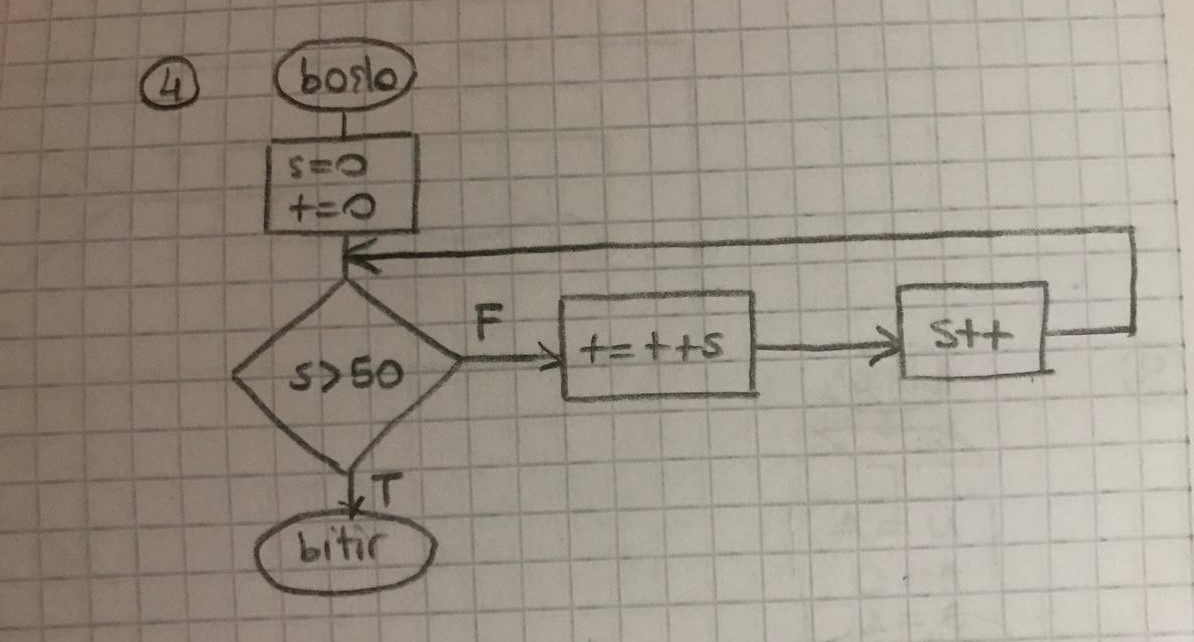 4
başla
s=0
t=0
s>50
F
t=t+s
s++
T
bitir